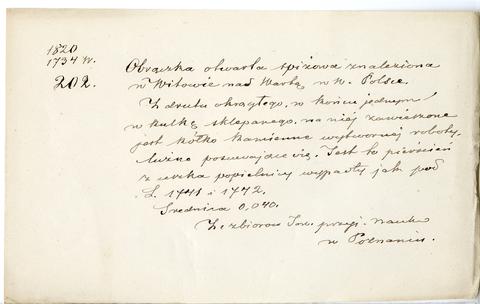 1820
1734 W.
202.
Obrączka otwarta spiżowa znaleziona
w Witowie nad Wartą w W. Polsce.
Z drutu okrągłego, w końcu jednym
w kulkę sklepanego, na niej zawieszone
jest kółko kamienne wytwornéj roboty,
luźno posuwające się. Jest to pierścień
z uszka popielnicy wypadły jak pod
L. 1741 i 1772.
Średnica 0,040.
Ze zbiorów Tow. przyj. nauk
w Poznaniu.